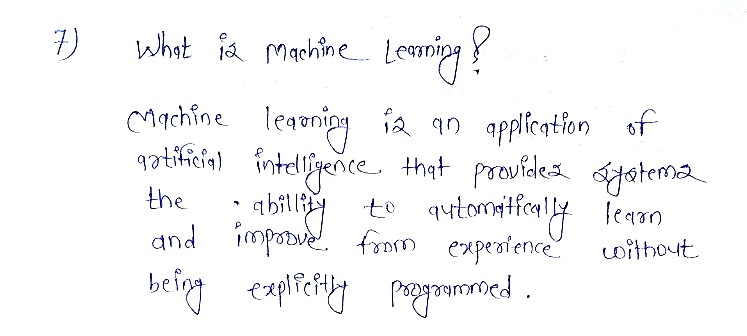 7) What is Machine Learning?
Machine learning is an application of
artificial intelligence that provides systems
the abillity to automatically learn
and improve from experience without
being explicitly programmed.